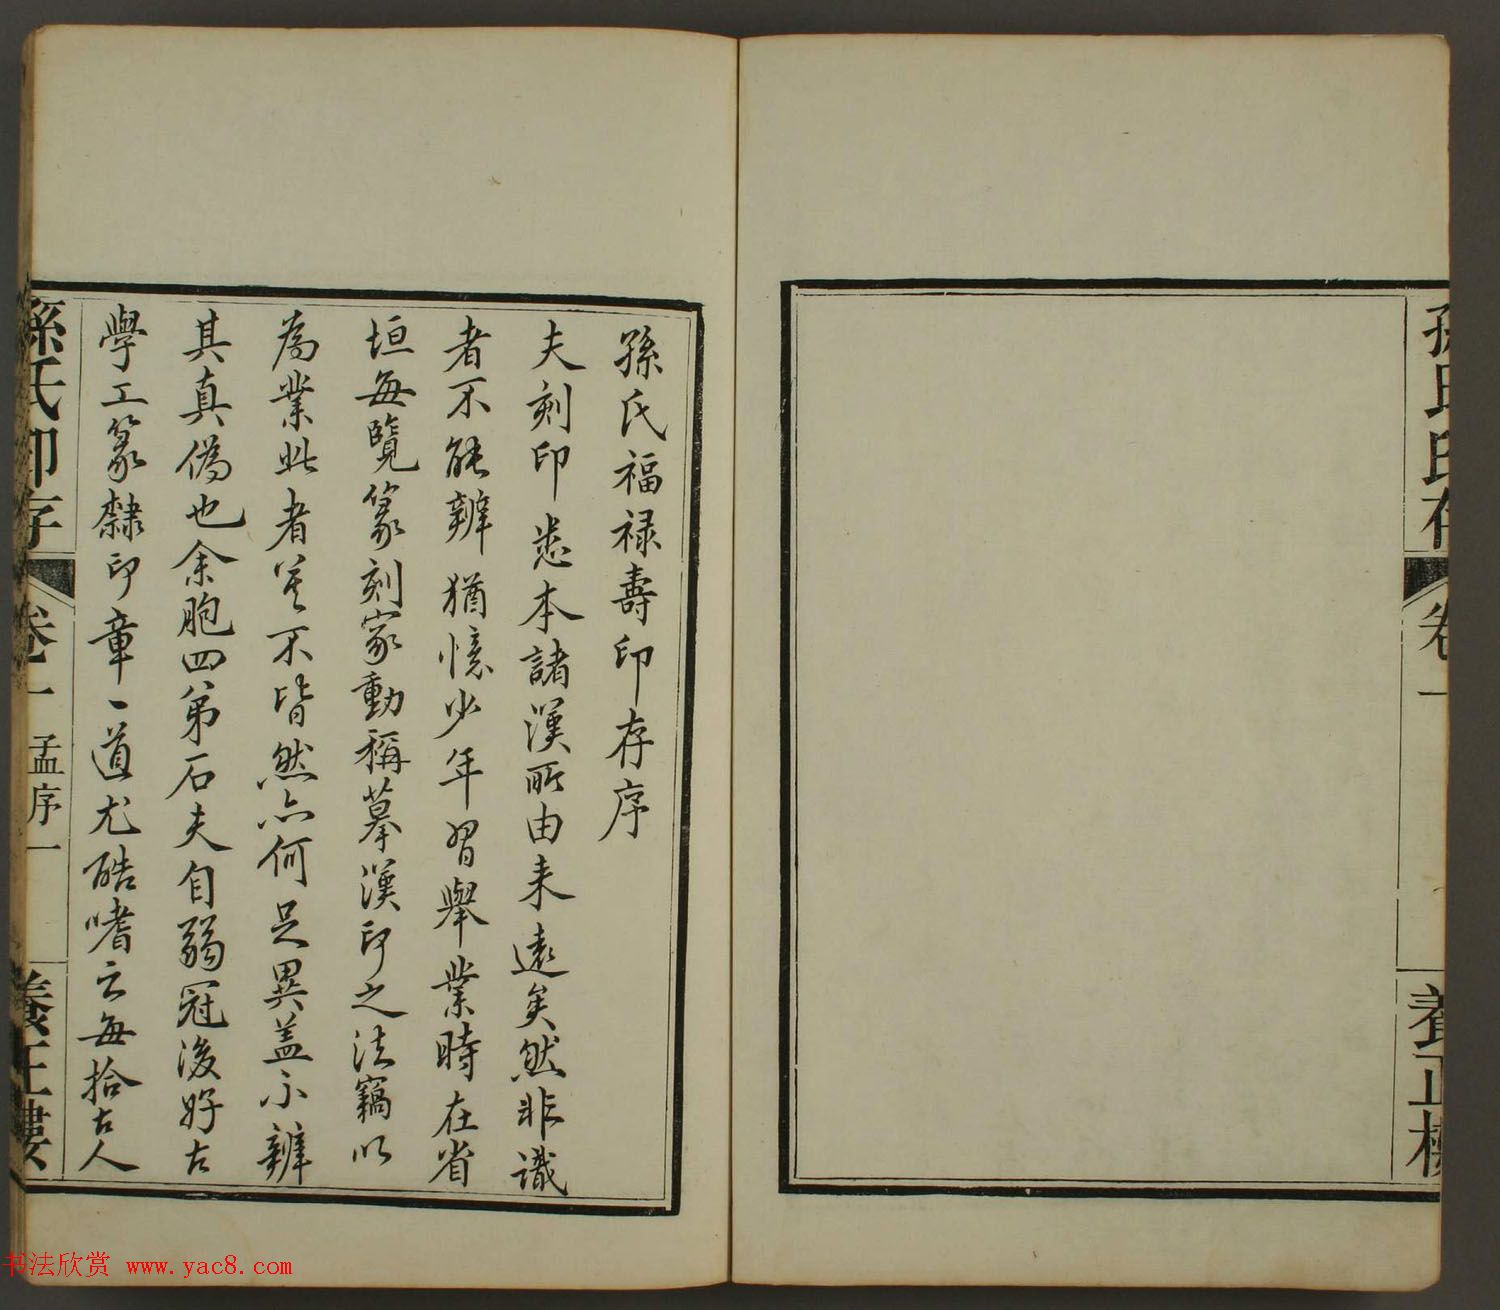 孫氏印存
卷一
養正樓
孫氏福禄壽印存序
夫刻印悉本諸漢所由来遠矣然非識
者不能辨猶憶少年習舉業時在省
垣每覽篆刻家動稱摹漢印之法竊以
為業此者莫不皆然亦何足異盖不辨
其真偽也余胞四弟石夫自弱冠後好古
學工篆隸印章一道尤酷嗜之每拾古人
孫氏印存
卷一
孟序一
養正樓
书法欣赏 www.yac8.com